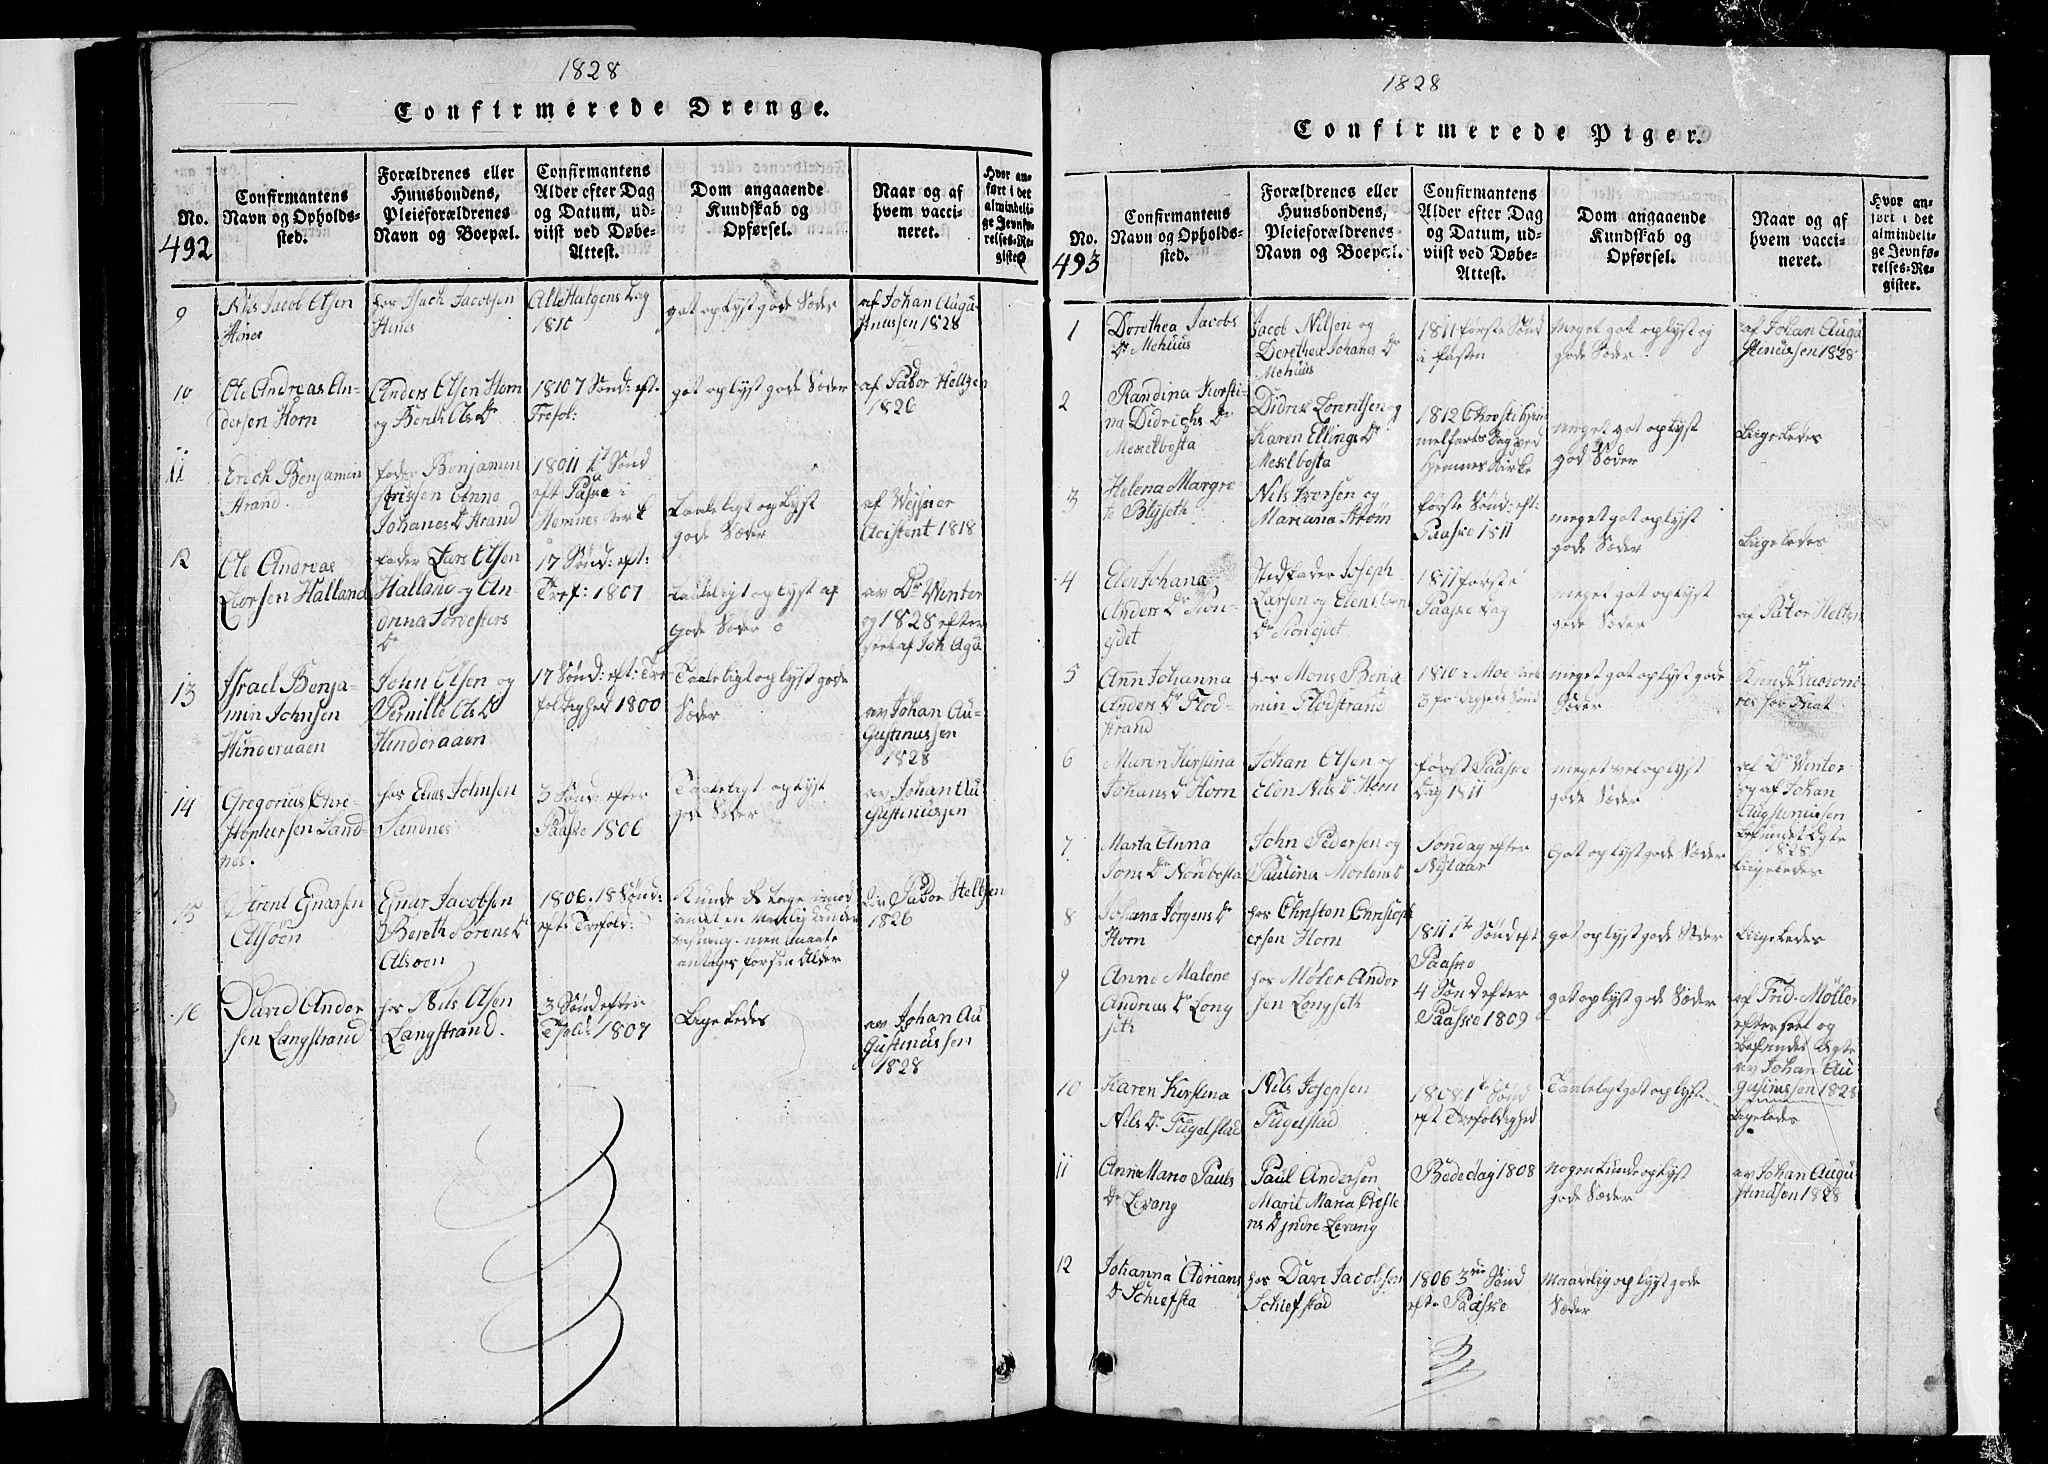 1828
Confirmerede Drenge.
No.
492
Confirmantens
Navn og Opholds-
sted.
Forældrenes eller
Huusbondens,
Pleieforældrenes
Navn og Boepæl.
Confirmantens
Alder efter Dag
og Datum, ud-
viist ved Døbe-
Attest.
Dom angaaende
Kundskab og
Opførsel.
Naar og af
hvem vacci-
neret.
Hvor an-
ført i det
almindeli-
ge Jevnfø-
relses-Re-
gister.
9
Nils Jacob Olsen
Hines
hos Isach Jacobsen
Hines
Alle Halgens Dag
1810
got oplyst gode Sæder
af Johan Augu
stinussen 1828
10
Ole Andreas An-
dersen Horn
Anders Olsen Horn
og Berith Ols Dr
1810 7 Sønd: eft.
Trefol:
got oplyst gode Sæder
af Pastor Heltzen
1826
11
Erich Benjamin
Strand
fader Benjamin
Anne
Johanes Dr Strand
1ste Sønd
eft Paaske i
Hemnes Kirke
Taaleligt oplyst
gode Sæder
af
Acistent 1818
12
Ole Andreas
Larsen Halland
fader Lars Olsen
Halland og An-
drina Sorvesters
Dr
17 Sønd: eft:
Tref: 1807
Taaleligt oplyst af
gode Sæder
av Dr Winter
og 1828 efter
seet af Joh Agu
13
Israel Benja-
min Johnsen
Hinderaaen
John Olsen og
Pernille Ols Dr
Hinderaaen
17 Sønd: eft: Tre
foldighed 1800
Taaleligt oplyst gode
Sæder
av Johan Au-
Gustinussen
1828
14
Gregorius Chre-
stophersen Sand-
nes.
hos Elias Johnsen
Sandnes
3 Sønd: efter
Paaske 1806
Taaleligt oplyst
gode Sæder
av Johan Au
Gustinussen
15
Arent Ejnarsen
Alsoen
Ejnar Jacobsen
Bereth Sørens Dr
Alsoen
1806. 18 Sønd:
eft: Trefold:
men maate
antages for sin Alder
Pastor Heltzen
1826
16
David Ander
sen Langstrand
hos Nils Olsen
Langstrand.
3 Sønd efter
Tfold: 1807
Ligeledes
av Johan Au
Gustinussen
1828
1828
Confirmerede Piger.
No.
493
Confirmantens
Navn og Opholds-
sted.
Forældrenes eller
Huusbondens,
Pleieforældrenes
Navn og Boepæl.
Confirmantens
Alder efter Dag
og Datum, ud-
viist ved Døbe-
Attest.
Dom angaaende
Kundskab og
Opførsel.
Naar og af
hvem vacci-
neret.
Hvor an-
ført i det
almindeli-
ge Jevnfø-
relses-Re-
gister.
1
Dorothea Jacobs
Dr Mehuus
Jacob Nilsen og
Dorethea Johanes Dr
Mehuus
1811 første Sønd
i fasten
Meget got oplyst og
gode Sæder
af Johan Augu
stinussen 1828
2
Randina Kersti-
na Didrichs Dr
Meselbosta
Didrik Lorentsen og
Karen Ellings Dr
Meselbosta
1812 Christi Him
melfarts Dag ved
Hemnes Kirke
meget got oplyst
god Sæder
Ligeledes
3
Helena Margre-
te Blyseth
Nils Iversen og
Mariana Strøm
første Sønd: eft:
Paaske 1811
meget got oplyst
gode Sæder
Ligeledes
4
Elen Johana
Anders Dr
Stedfader Joseph
Larsen og Elen
1811 første
Paaske Dag
meget got oplyst
gode Sæder
af Pastor Heltzen
5
Ann Johanna
Anders Dr Flod-
strand
hos Mons Benja
min Flodstrand
1810 i Moe Kirke
Sønd
meget got oplyst gode
Sæder
6
Maren Kirstina
Johans Dr Horn
Johan Olsen og
Elen Nils Dr Horn
først Paaske
dag 1811
meget vel oplyst
gode Sæder
af Dr Winter
og af Johan
Augstenussen
befundet Ægte
1828
7
Marta Anna
Jons Dr Noubosta
John Pedersen og
Paulina Mortens Dr
Søndag efter
Nytaar
Got oplyst gode Sæder
Ligeledes
8
Johana Jørgens Dr
Horn
hos Christen Christoph
ersen Horn
1811 1te Sønd eft
Paaske
got oplyst gode Sæder
Ligeledes
9
Anne Malene
Andreas Dr Long
seth
hos Møler Ander
sen Longseth
4 Sønd efter
Paaske 1809
got oplyst gode Sæder
af Frid. Møller
efterseet og
befundet Ægte
av Johan Au
Gusinussen 1828
10
Karen Kirstina
Nils Dr Fugelstad
Nils Josepsen
Fugelstad
1808 1te Sønd
eft Trefoldighed
Taaleligt got oplyst
Ligeledes
11
Anne Marie Pauls
Dr Levang
Paul Andersen
Marit Maria Christe
ns Dr indre Levang
Bededag 1808
nogenlunde oplyst
gode Sæder
av Johan Augu
stinussen 1828
12
Johanna Adrians
Dr Schiefsta
hos Dave Jacobsen
Schiefstad
1806 3die Sønd
eft: Paaske
Maadelig oplyst gode
Sæder